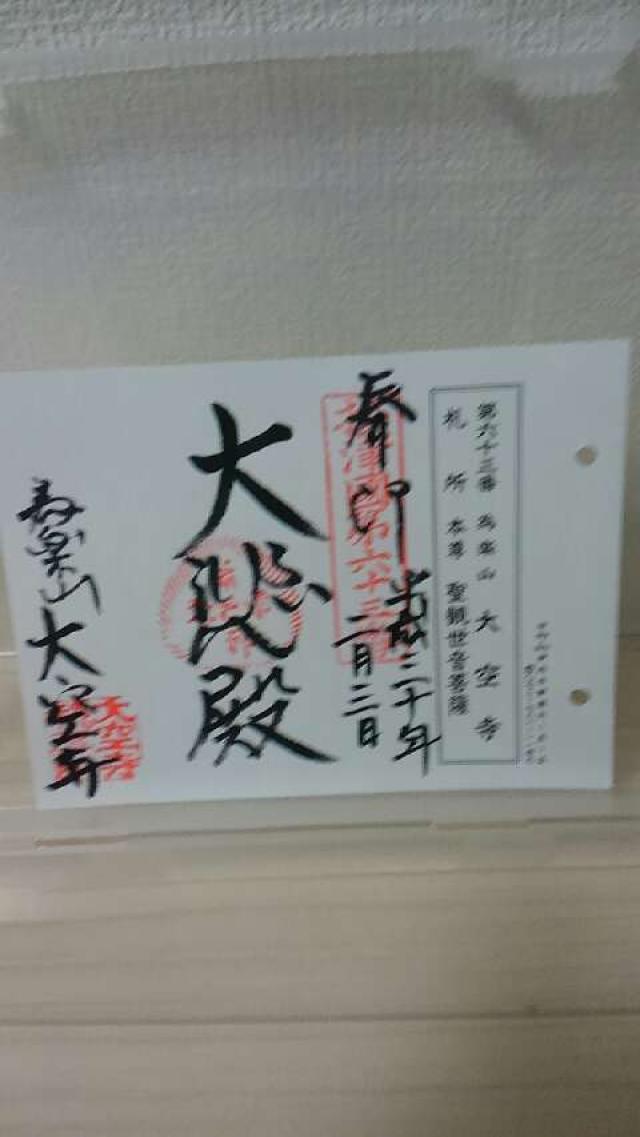 第六十三番 為楽山 大空寺
札所 本尊 聖観世音菩薩
奉印 平成三十年
二月三日
大悲殿
為楽山 大空寺